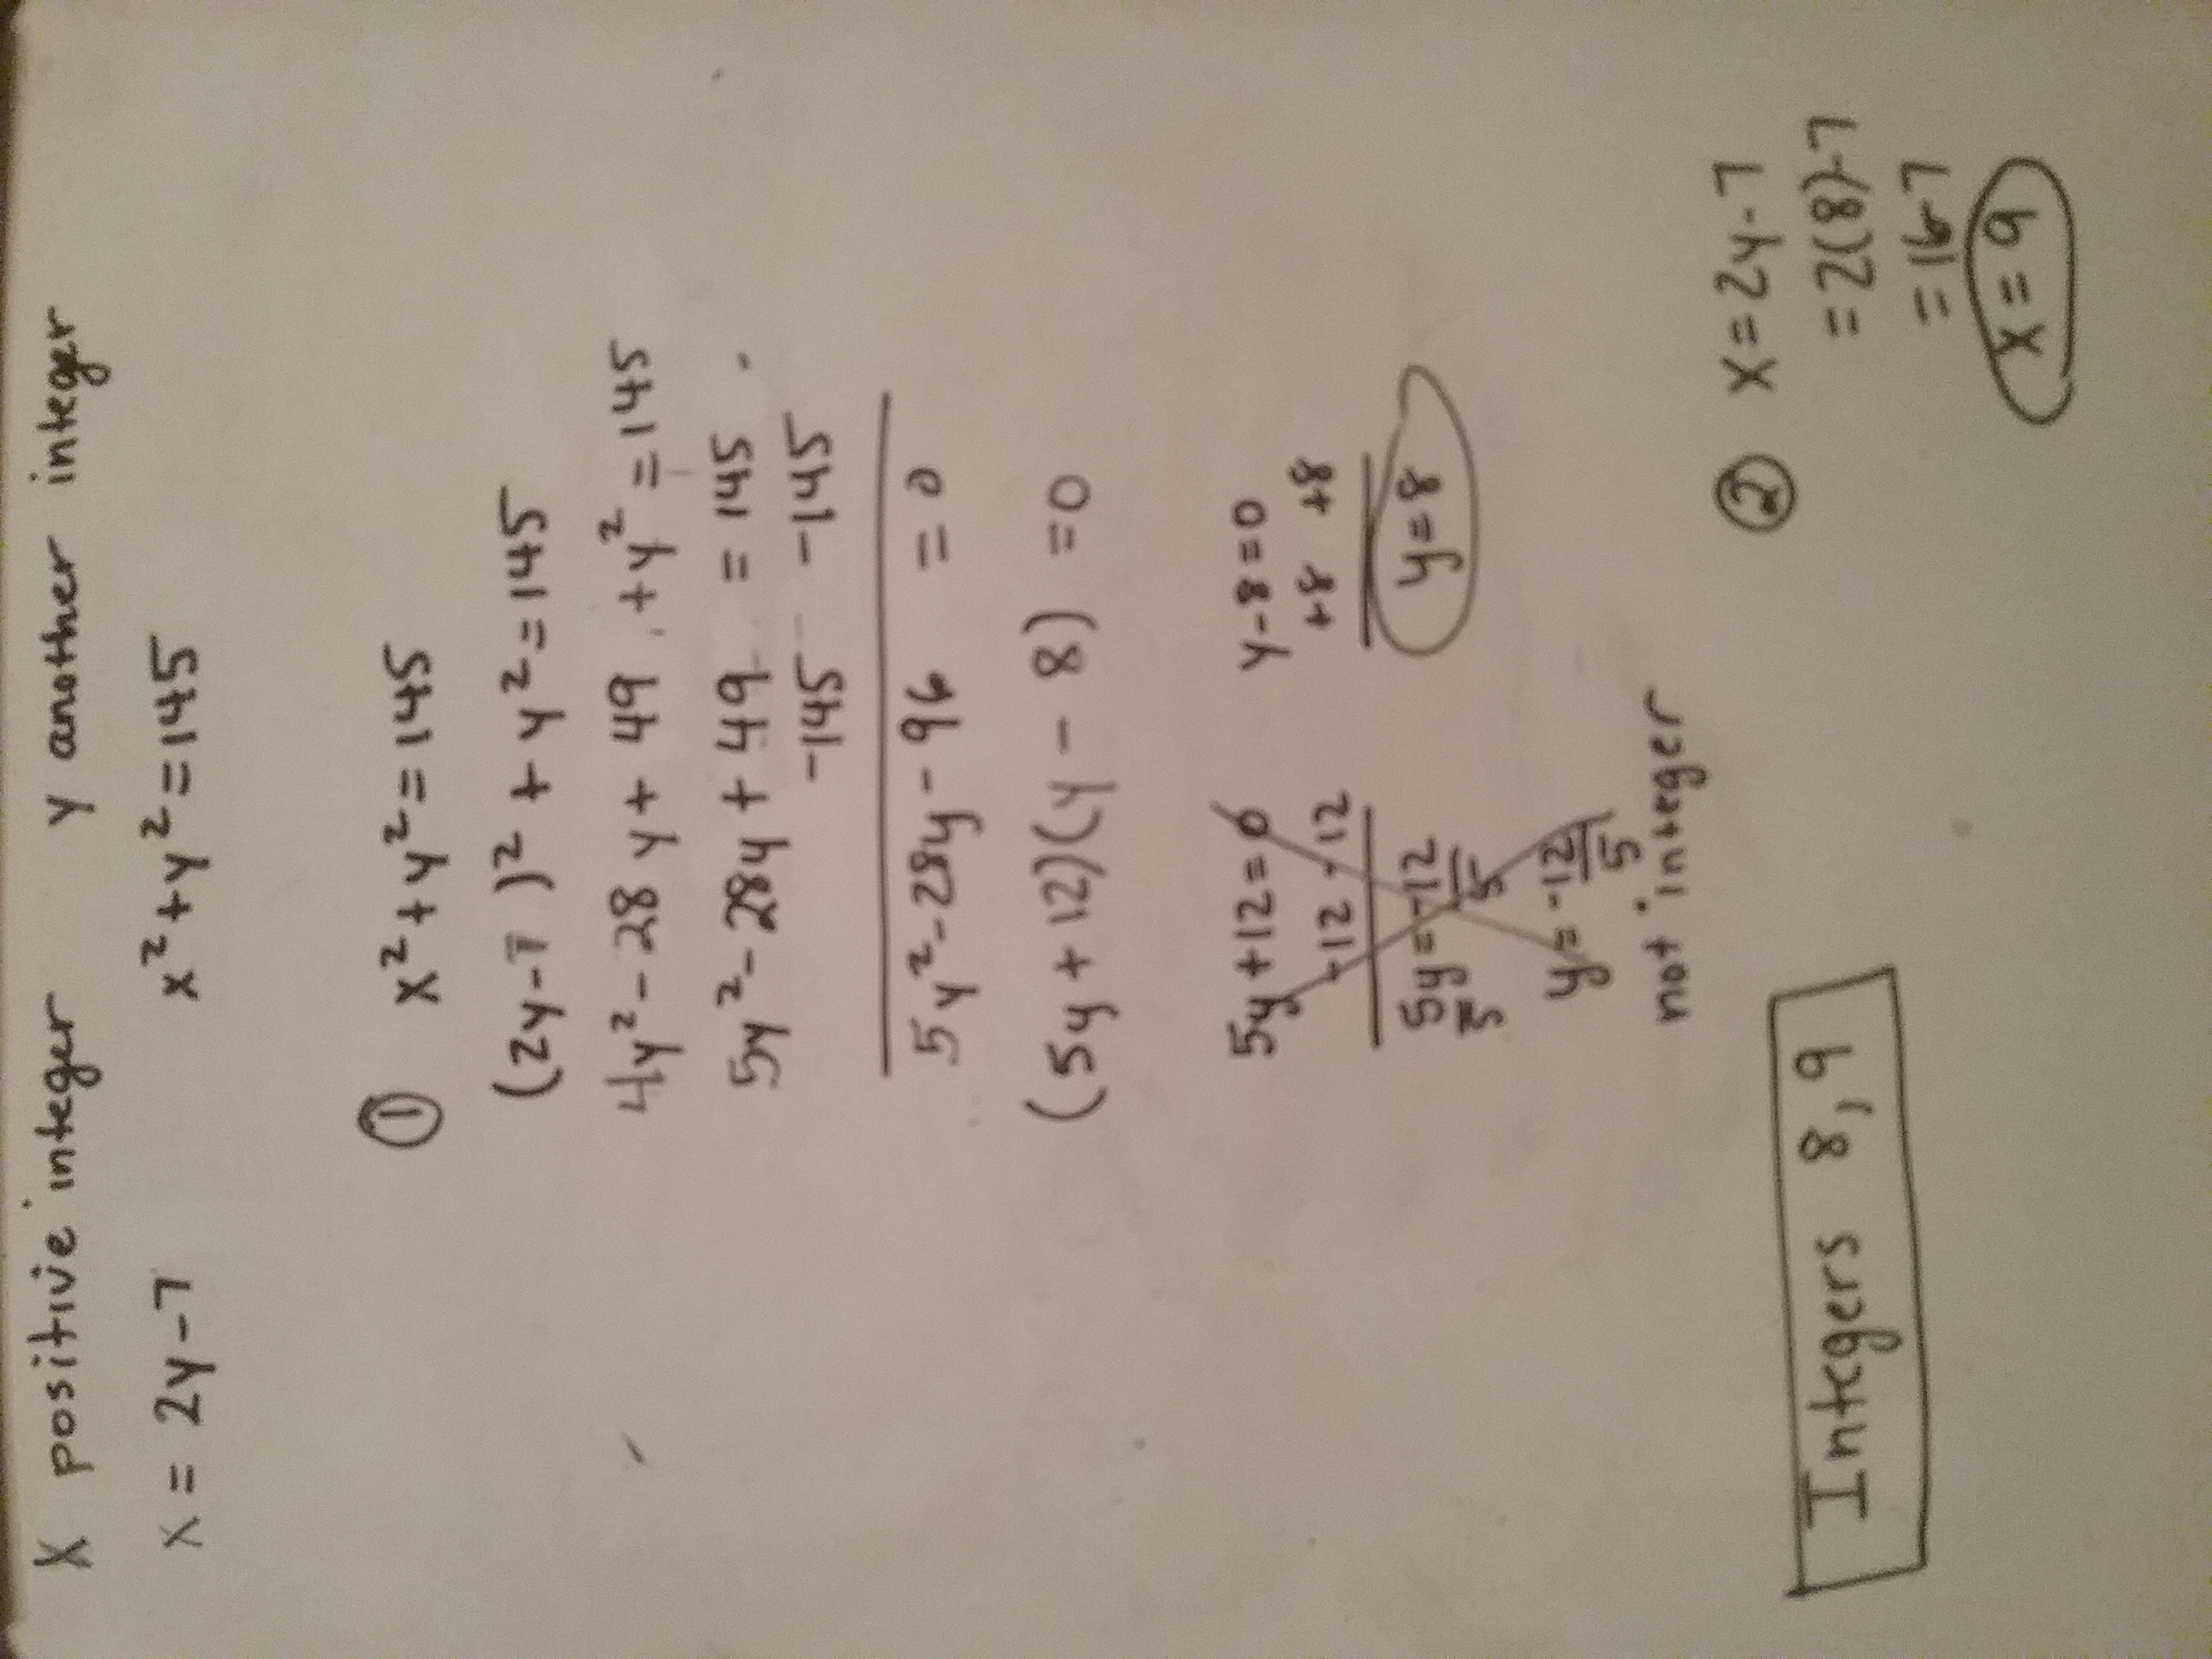 x positive integer y another integer
x = 2y-7 x²+y²=145
① x²+y²=145
(2y-7)²+y²=145
4y²-28y+49+y²=145
5y²-28y+49 = 145
-145 -145
5y²-28y-96 = 0
(5y+12)(y-8)=0
5y+12=0 y-8=0
-12 -12 +8 +8
5y=-12 y=8
5 5
y=-12
5
not integer
② x=2y-7
Integers 8,9 =2(8)-7
=16-7
x=9